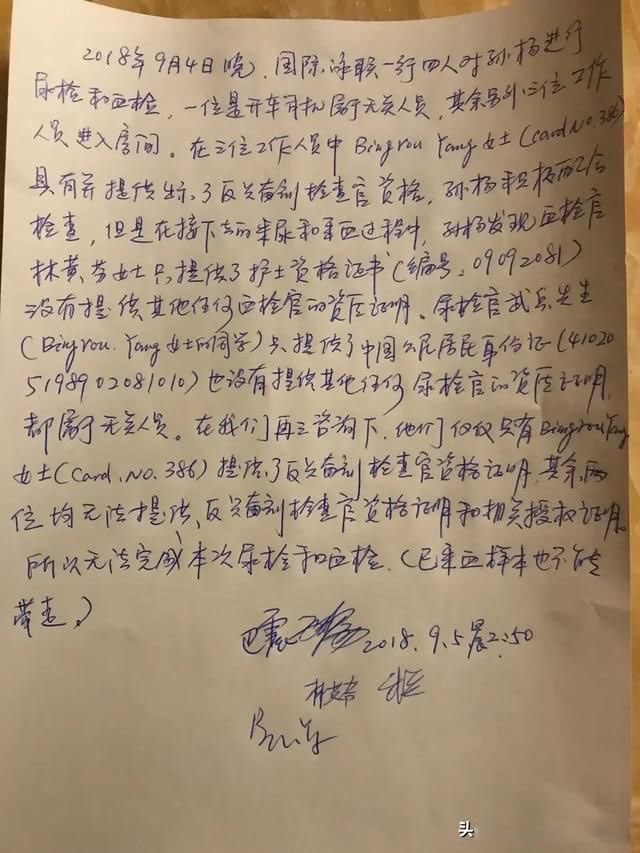 2018年9月4日晚,国际泳联一行四人对孙杨进行
尿检和血检,一位是开车司机属于无关人员,其余另外三位工作
人员进入房间。在三位工作人员中Bingrou Yang女士(card No.386)
具有并提供出示了反兴奋剂检查官资格,孙杨积极配合
检查,但是在接下去的采尿和采血过程中,孙杨发现血检官
林黄芬女士只提供了护士资格证书(编号:09092081)
没有提供其他任何血检官的资质证明。尿检官武兵先生
(Bingrou.Yang女士的同学)只提供了中国公民居民身份证(41020
5198902081010)也没有提供其他任何尿检官的资质证明,
都属于无关人员。在我们再三咨询下,他们仅仅只有Bingrou Yang
女士(Card.No.386)提供了反兴奋剂检查官资格证明,其余两
位均无法提供反兴奋剂检查官资格证明和相关授权证明。
所以无法完成本次尿检和血检.(已采血样本也不能
带走。)
2018.9.5晨2:50
头